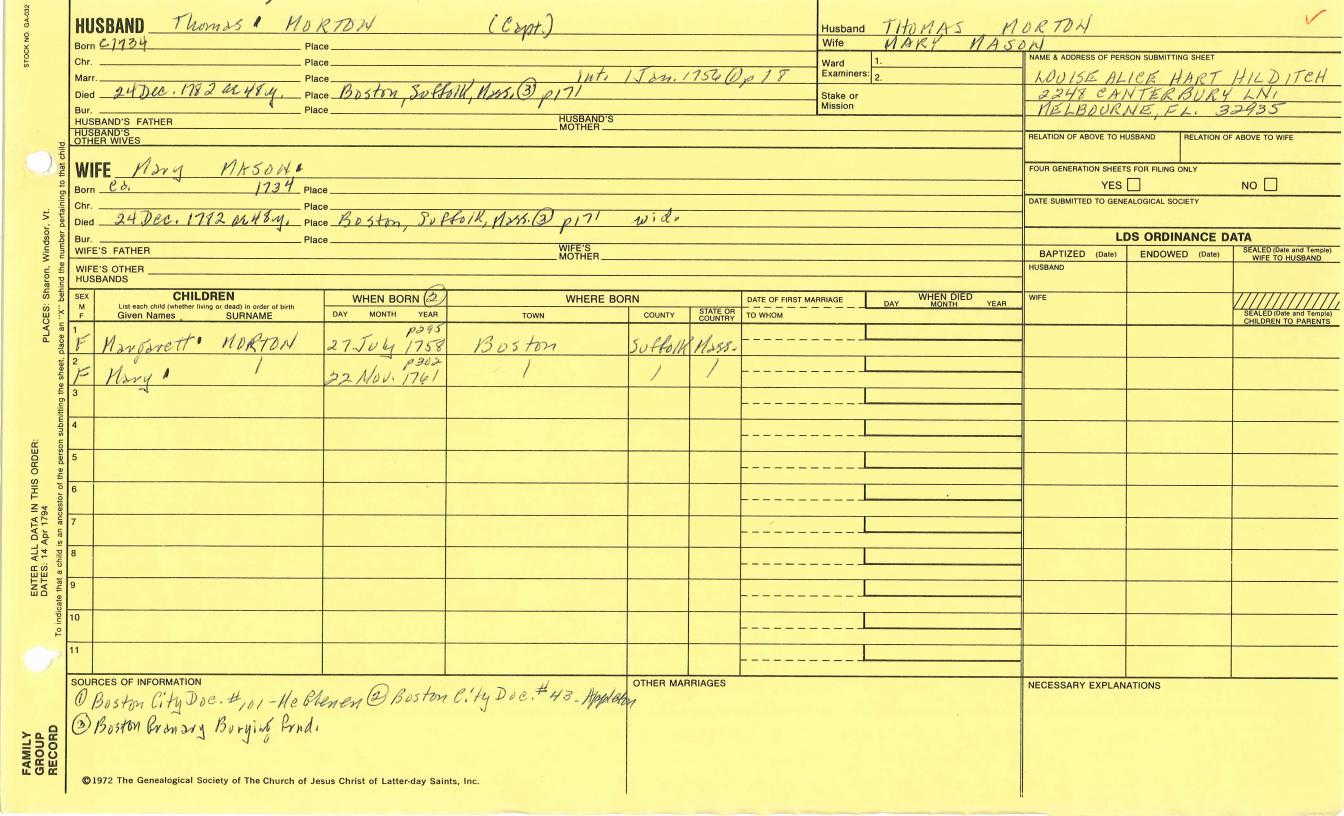 STOCK NO. GA-032
HUSBAND Thomas MORTON (Capt.)
Born C1734 Place
Chr. Place
Marr. Place Int. 1 Jan. 1756 ① p 18
Died 24 Dec. 1782 ae 48 y. Place Boston, Suffolk, Mass. ③ p171
Bur. Place
HUSBAND'S FATHER HUSBAND'S MOTHER
HUSBAND'S OTHER WIVES
Husband THOMAS MORTON
Wife MARY MASON
Ward Examiners: 1.
2.
Stake or Mission
NAME & ADDRESS OF PERSON SUBMITTING SHEET
LOUISE ALICE HART HILDITCH
2248 CANTERBURY LN.
MELBOURNE, FL. 32935
RELATION OF ABOVE TO HUSBAND RELATION OF ABOVE TO WIFE
FOUR GENERATION SHEETS FOR FILING ONLY
YES NO
DATE SUBMITTED TO GENEALOGICAL SOCIETY
WIFE Mary MASON.
Born Ca. 1734 Place
Chr. Place
Died 24 Dec. 1782 ae 48 y. Place Boston, Suffolk, Mass. ③ p171 wid.
Bur. Place
WIFE'S FATHER WIFE'S MOTHER
WIFE'S OTHER HUSBANDS
LDS ORDINANCE DATA
BAPTIZED (Date) ENDOWED (Date) SEALED (Date and Temple) WIFE TO HUSBAND
HUSBAND
WIFE
SEALED (Date and Temple) CHILDREN TO PARENTS
SEX M F CHILDREN WHEN BORN ② WHERE BORN DATE OF FIRST MARRIAGE WHEN DIED
List each child (whether living or dead) in order of birth
Given Names SURNAME DAY MONTH YEAR TOWN COUNTY STATE OR COUNTRY TO WHOM DAY MONTH YEAR
1 p295
F Margarett MORTON 27 July 1758 Boston Suffolk Mass.
2 p302
F Mary 22 Nov. 1761
3
4
5
6
7
8
9
10
11
SOURCES OF INFORMATION
① Boston City Doc. #101 - ② Boston City Doc. #43 - Appleton
③ Boston Granary Burying Grnd.
OTHER MARRIAGES
NECESSARY EXPLANATIONS
©1972 The Genealogical Society of The Church of Jesus Christ of Latter-day Saints, Inc.
PLACES: Sharon, Windsor, Vt.
ENTER ALL DATA IN THIS ORDER:
DATES: 14 Apr 1794
To indicate that a child is an ancestor of the person submitting the sheet, place an "X" behind the number pertaining to that child
FAMILY
GROUP
RECORD